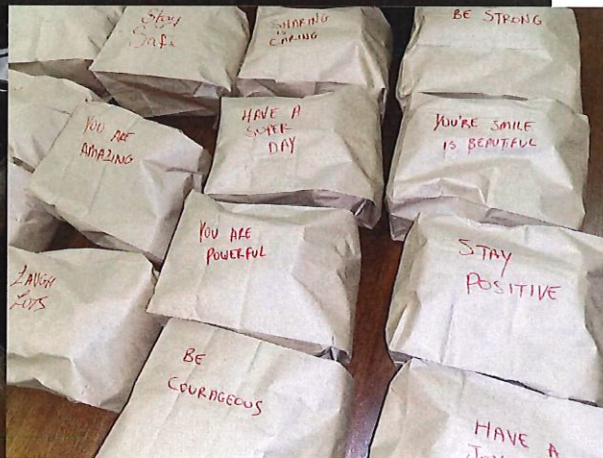 Stay
Safe
SHARING
IS
CARING
BE STRONG
YOU ARE
AMAZING
HAVE A
SUPER
DAY
YOU'RE SMILE
IS BEAUTIFUL
YOU ARE
POWERFUL
STAY
POSITIVE
LAUGH
LOTS
BE
COURAGEOUS
HAVE A